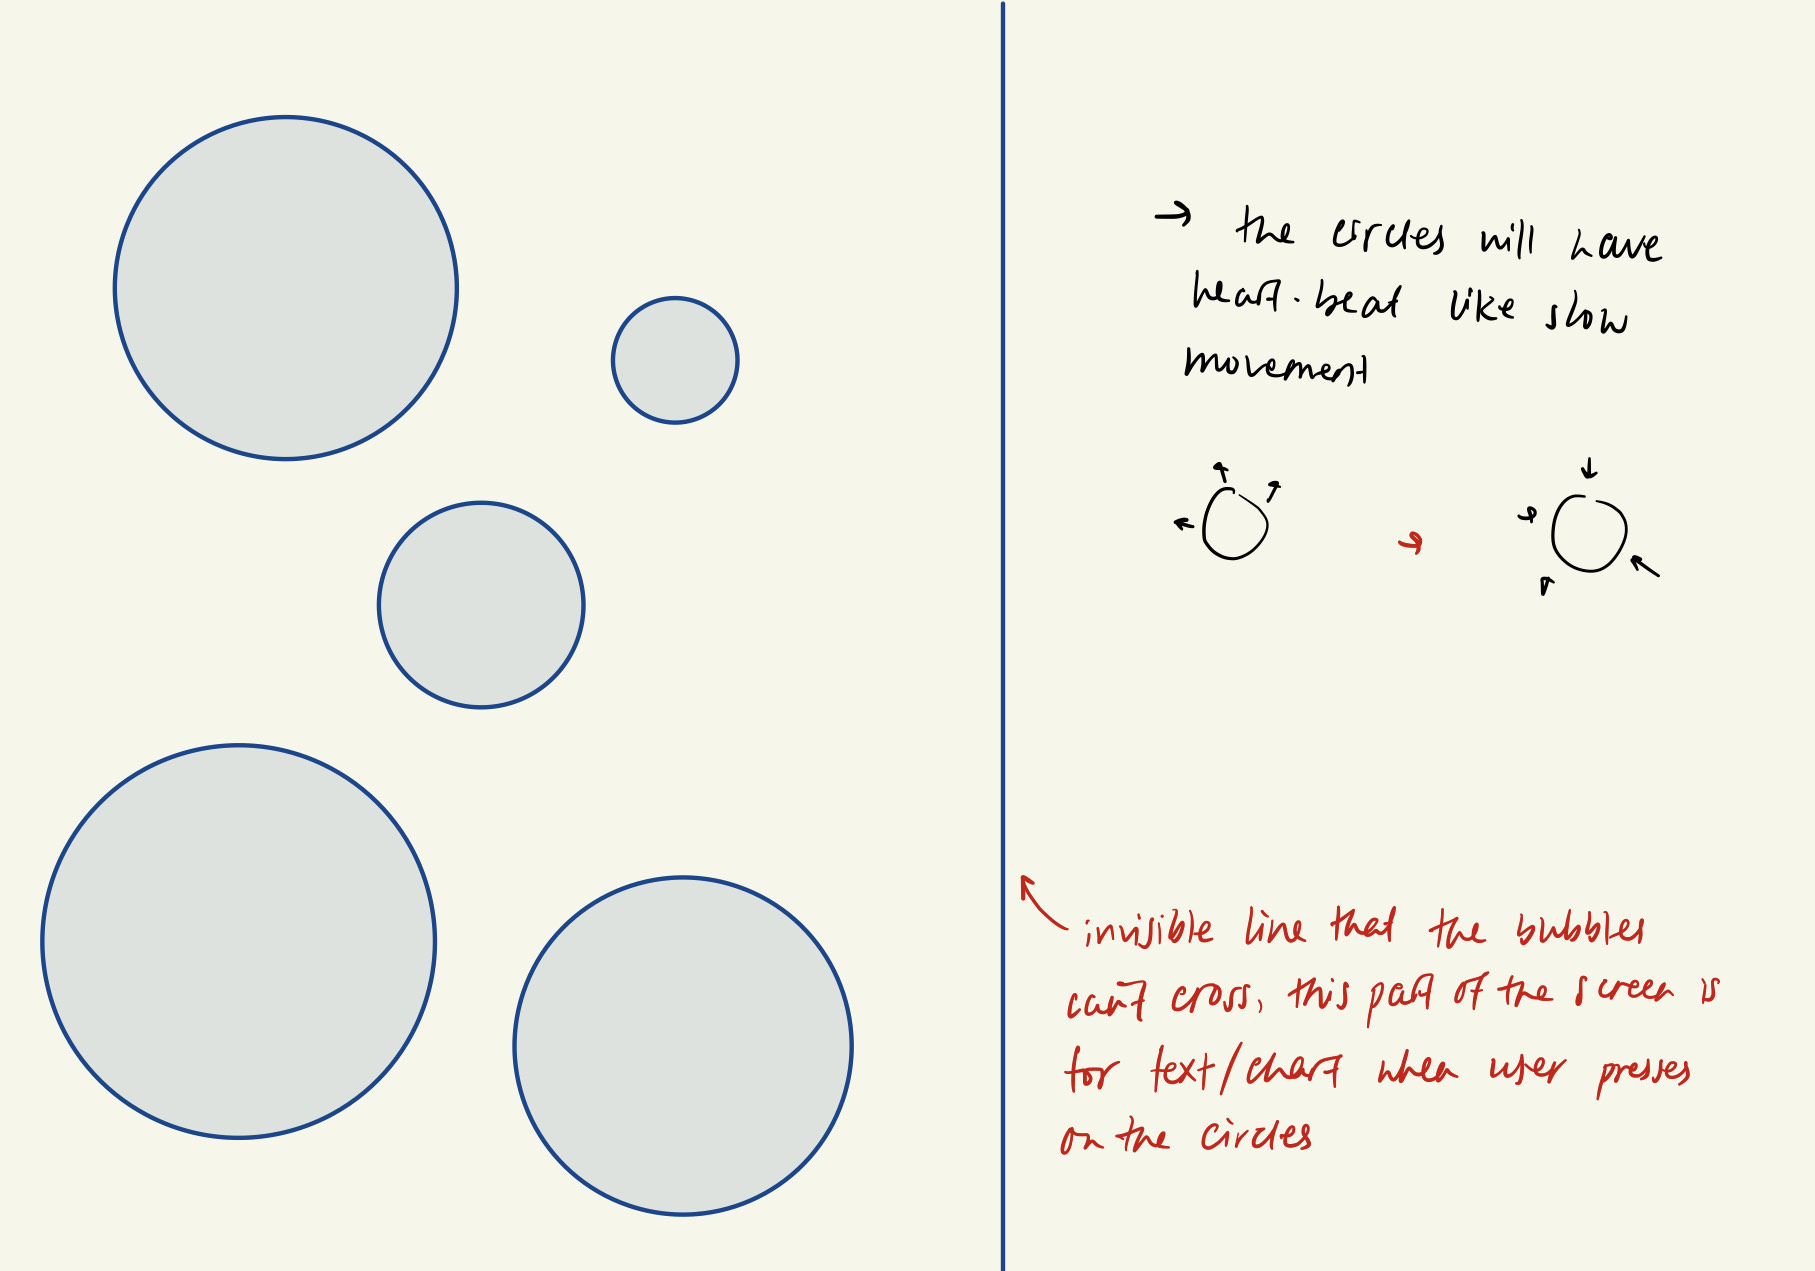 → the circles will have
heart-beat like slow
movement
invisible line that the bubbles
can't cross, this part of the screen is
for text/chart when user presses
on the circles